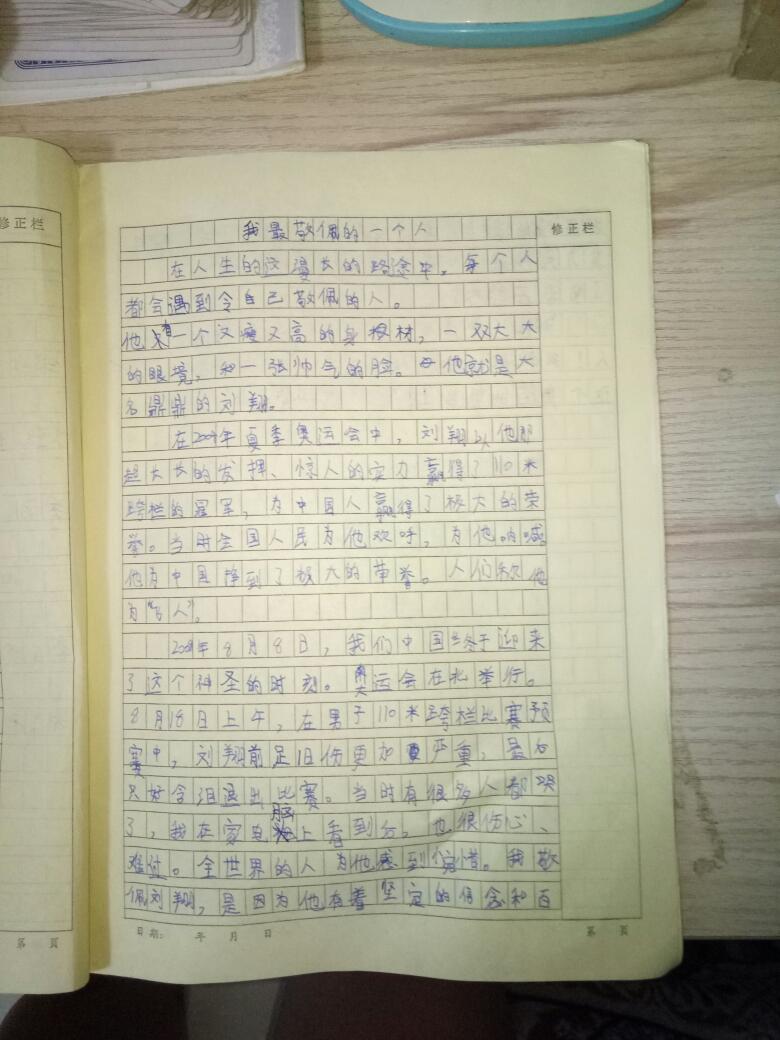 修正栏
我最敬佩的一个人
修正栏
在人生的这漫长的路途中，每个人
都会遇到令自己敬佩的人。
他有一个又瘦又高的身材，一双大大
的眼境，和一张帅气的脸。他就是大
名鼎鼎的刘翔。
在2004年夏季奥运会中，刘翔以他那
超长的发挥、惊人的实力赢得了110米
跨栏的冠军，为中国人赢得了极大的荣
誉。当时全国人民为他欢呼，为他呐喊
他为中国挣到了极大的荣誉。人们称他
为“飞人”。
2008年8月8日，我们中国终于迎来
了这个神圣的时刻。奥运会在北举行。
8月18日上午，在男子110米跨栏比赛预
赛中，刘翔前足旧伤更加严重，最后
只好含泪退出比赛。当时有很多人都哭
了，我在家电脑上看到后，也很伤心、
难过。全世界的人为他感到惋惜。我敬
佩刘翔，是因为他有着坚定的信念和百
第 頁
日期： 年 月 日
第 頁